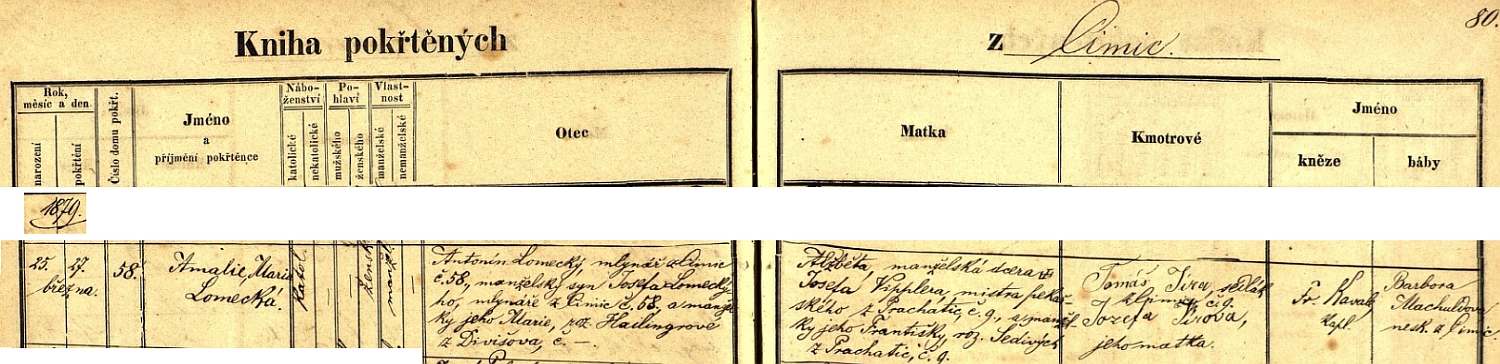 Kniha pokřtěných
z Čimic.
80.
Rok,
měsíc a den
narození
pokřtění
Číslo domu pokřt.
Jméno
a
příjmení pokřtěnce
Nábo-
ženství
katolické
nekatolické
Po-
hlaví
mužského
ženského
Vlast-
nost
manželské
nemanželské
Otec
Matka
Kmotrové
Jméno
kněze
báby
1879.
25. 27.
března.
58.
Amalie, Maria
Lomecká
Katol.
žensk
manžel.
Antonín Lomecký, mlynář z Čimic
č. 58, manželský syn Josefa Lomecký
ho, mlynáře z Čimic č. 58, a manžel
ky jeho Marie, roz. Hailingrové
z Divišova, č. —.
Alžběta, manželská dcera
Josefa Vipplera, mistra pekař-
ského z Prachatic, č. 9., a manžel
ky jeho Františky, roz. Šedivých
z Prachatic, č. 9.
Tomáš sedlák
č. 9.
Jozefa
jeho matka.
Fr. Kaval
kapl.
Barbora
Machuldova
z Čimic